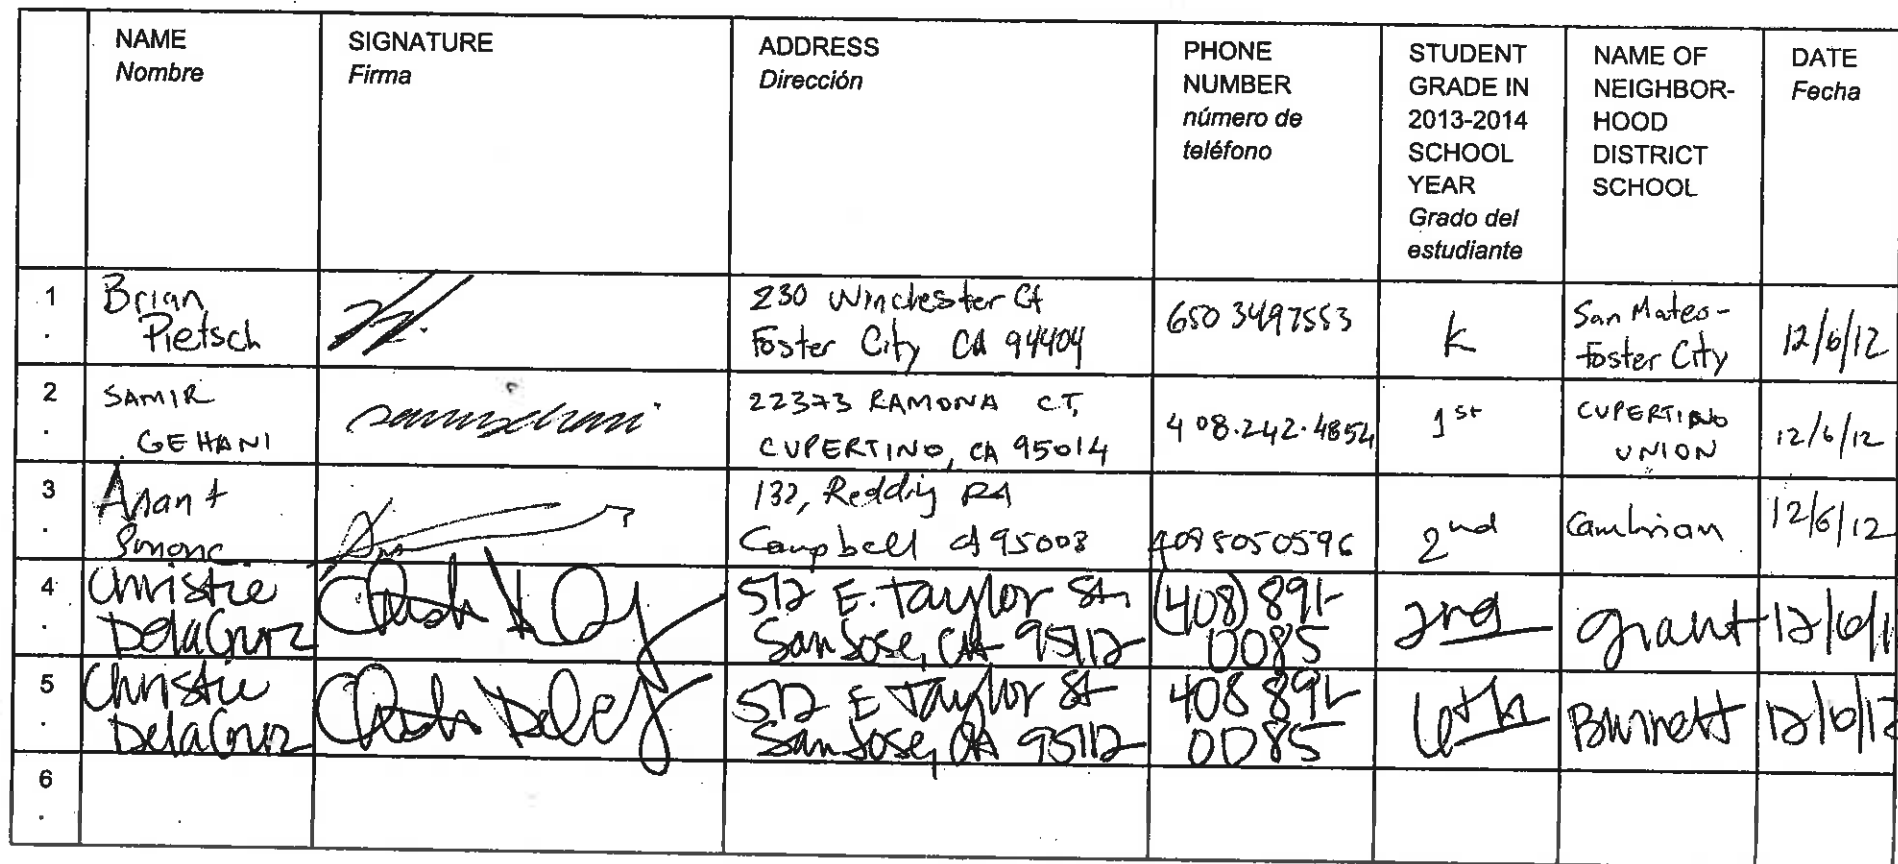 NAME
Nombre
SIGNATURE
Firma
ADDRESS
Dirección
PHONE
NUMBER
número de
teléfono
STUDENT
GRADE IN
2013-2014
SCHOOL
YEAR
Grado del
estudiante
NAME OF
NEIGHBOR-
HOOD
DISTRICT
SCHOOL
DATE
Fecha
1
.
Brian
Pietsch
230 Winchester Ct
Foster City CA 94404
650 3497553
K
San Mateo-
Foster City
12/6/12
2
.
SAMIR
GEHANI
22373 RAMONA CT,
CUPERTINO, CA 95014
408.242.4854
1st
CUPERTINO
UNION
12/6/12
3
.
Anant
Rd
Campbell CA 95008
4085050596
2nd
Cambrian
12/6/12
4
.
Christie
DelaCruz
512 E. Taylor St,
San Jose, CA 95112
(408) 891-
0085
Grant
12/6/1
5
.
Christie
DelaCruz
512 E Taylor St
San Jose, CA 95112
408 891-
0085
6th
Burnett
12/6/12
6
.